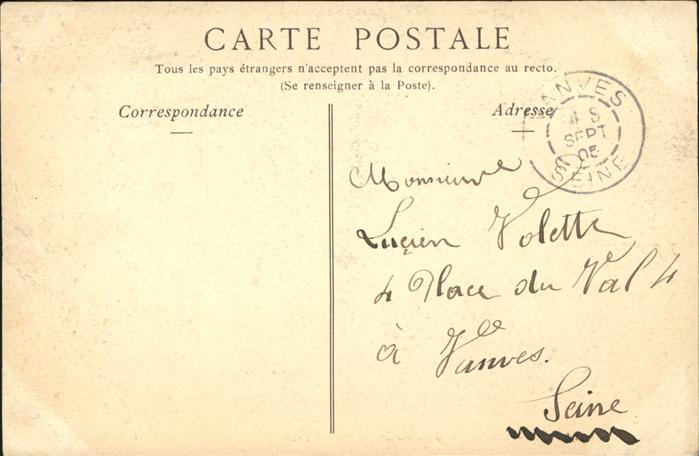 CARTE POSTALE
Tous les pays étrangers n'acceptent pas la correspondance au recto.
(Se renseigner à la Poste).
Correspondance
Adresse
VANVES
4 S
SEPT
05
SEINE
Monsieur
Lucien Volette
4 Place du Val 4
à Vanves.
Seine